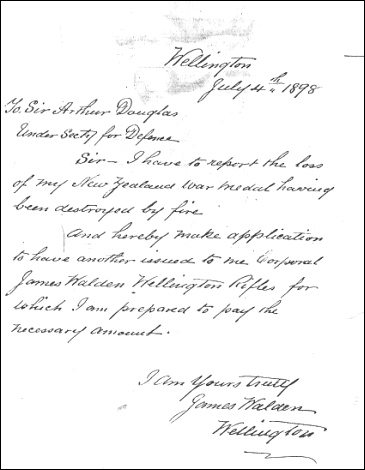 Wellington
July 4th 1898
To Sir Arthur Douglas
Under Secty for Defence
Sir - I have to report the loss
of my New Zealand war medal having
been destroyed by fire
And hereby make application
to have another issued to me Corporal
James Walden Wellington Rifles for
which I am prepared to pay the
necessary amount.
I am Yours truly
James Walden
Wellington